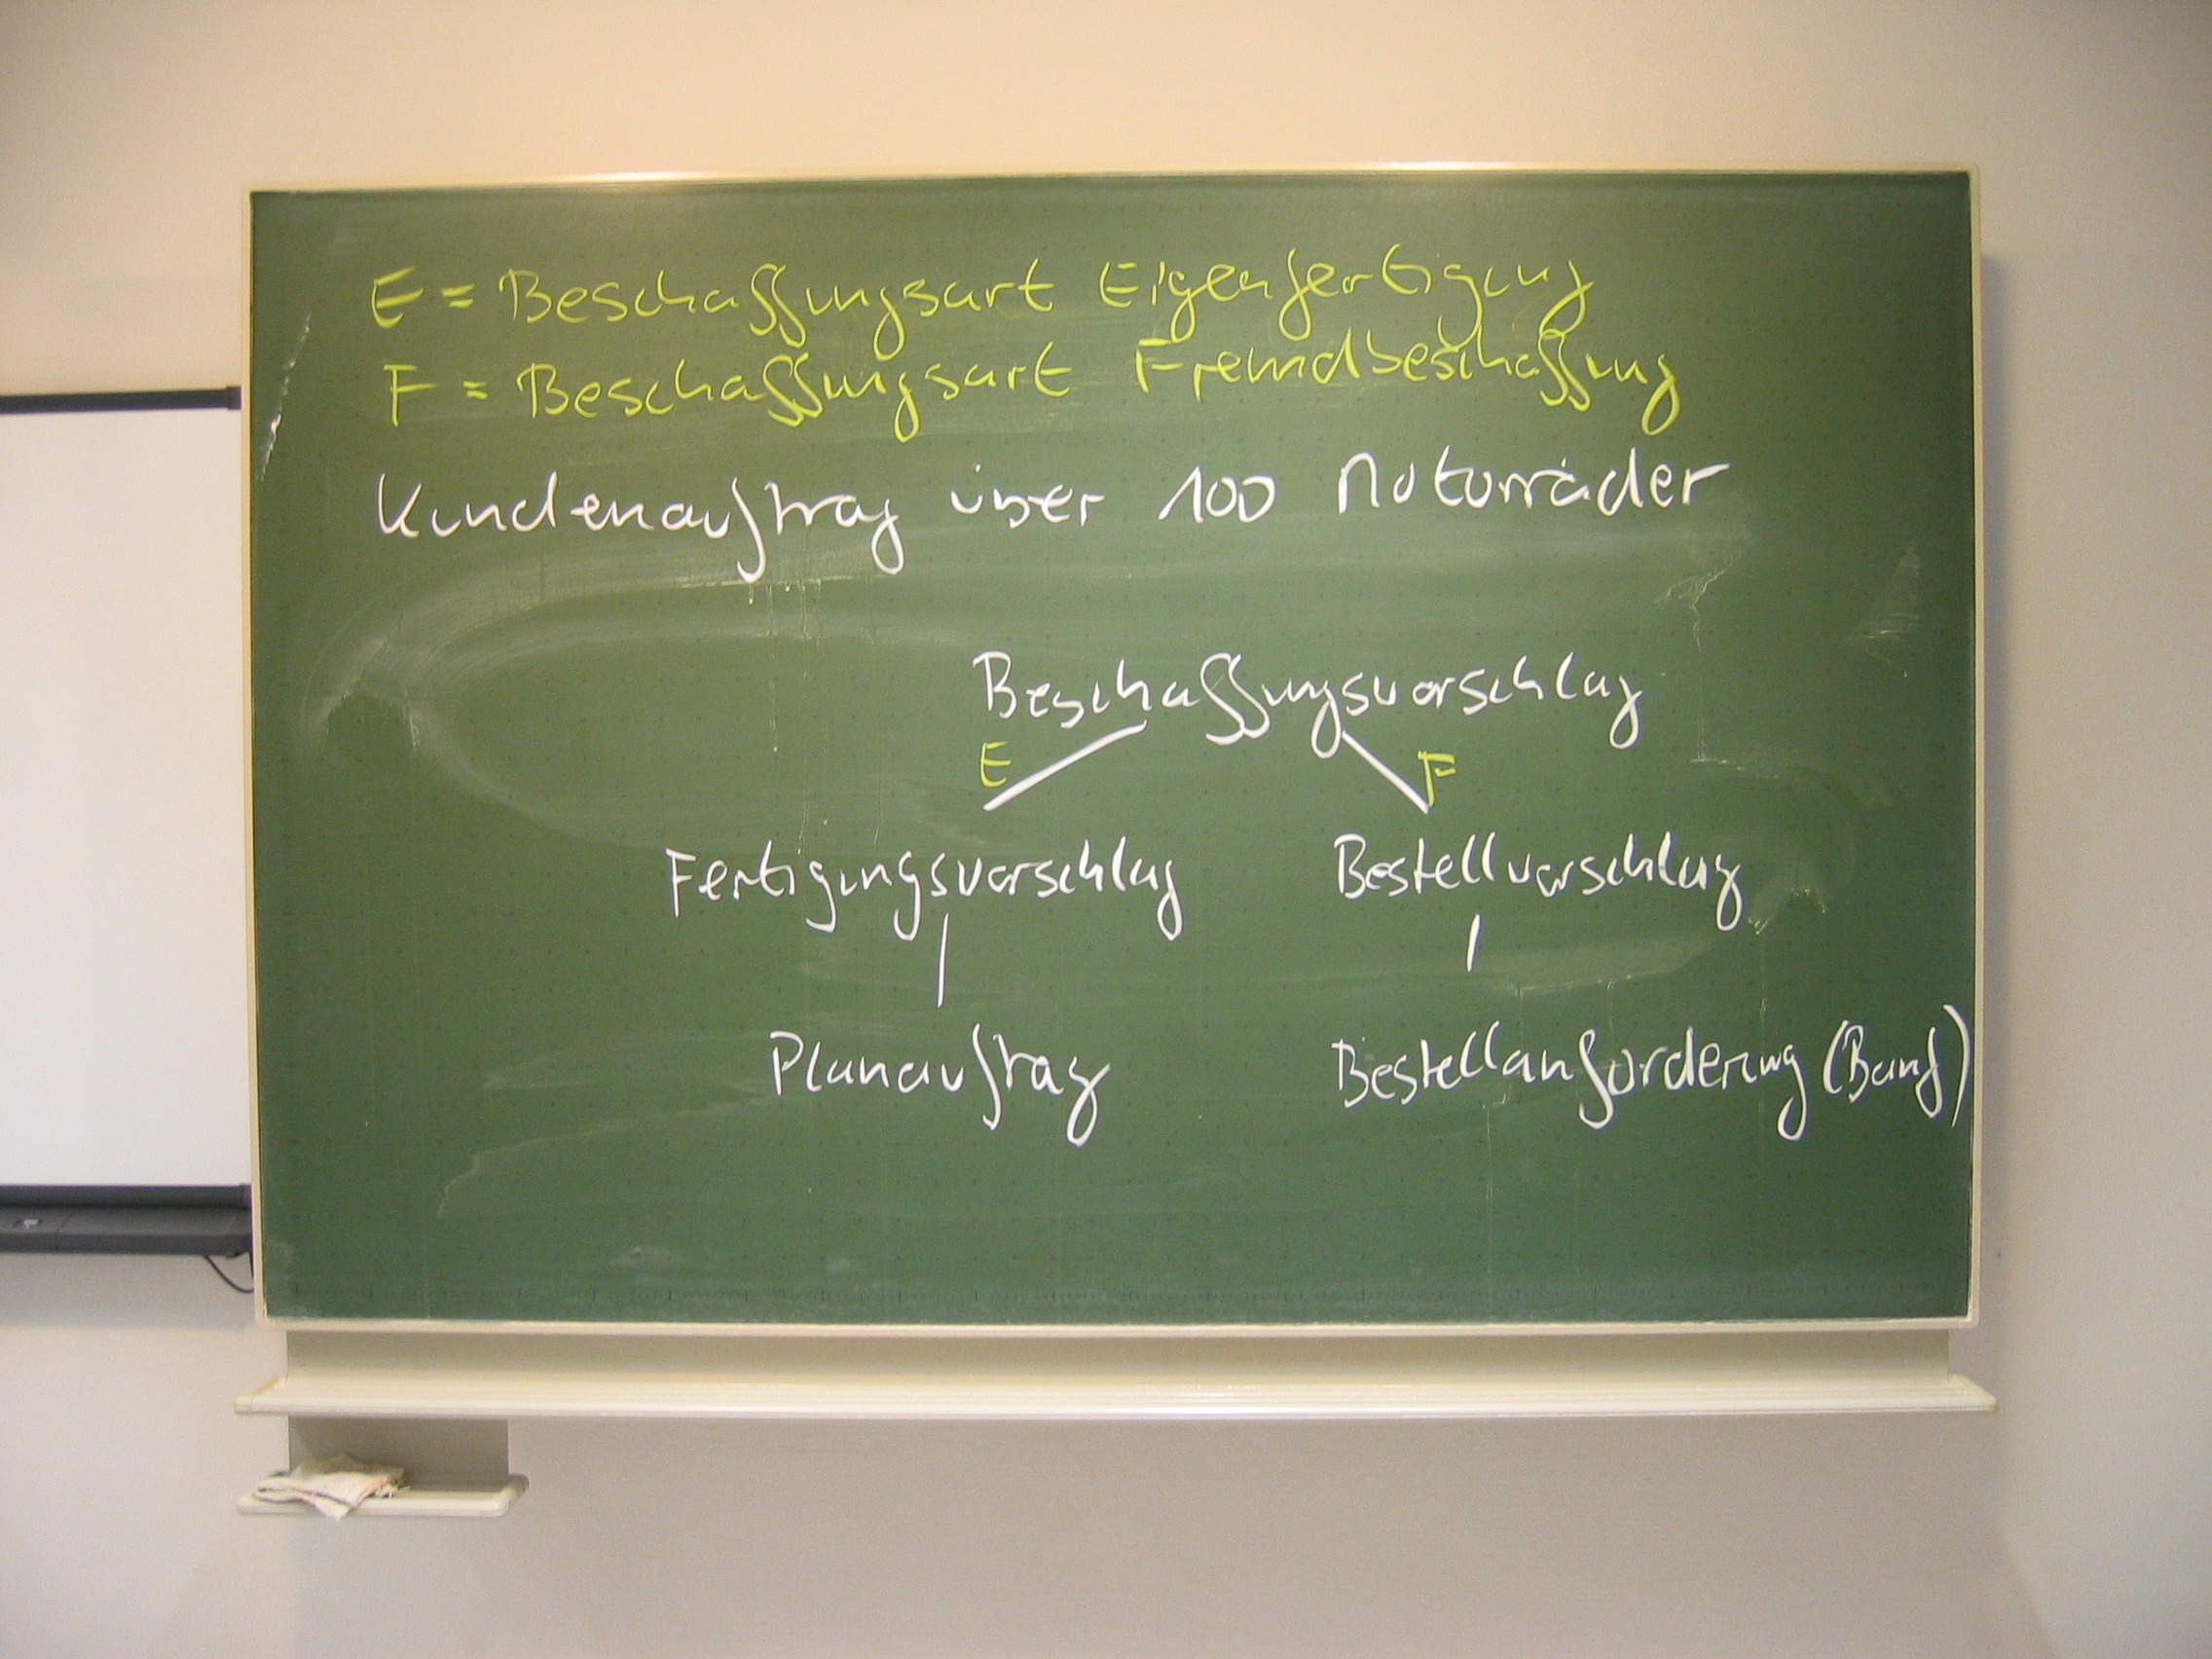 E = Beschaffungsart Eigenfertigung
F = Beschaffungsart Fremdbeschaffung
Kundenauftrag über 100 Motorräder
Beschaffungsvorschlag
E F
Fertigungsvorschlag Bestellvorschlag
Planauftrag Bestellanforderung (Banf)